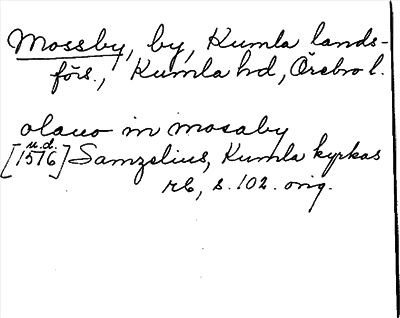 Mossby, by, Kumla lands-
förs., Kumla hd, Örebro l.
olauo in mosaby
u.d.
[1516] Samzelius, Kumla kyrkas
rb, s. 102. orig.